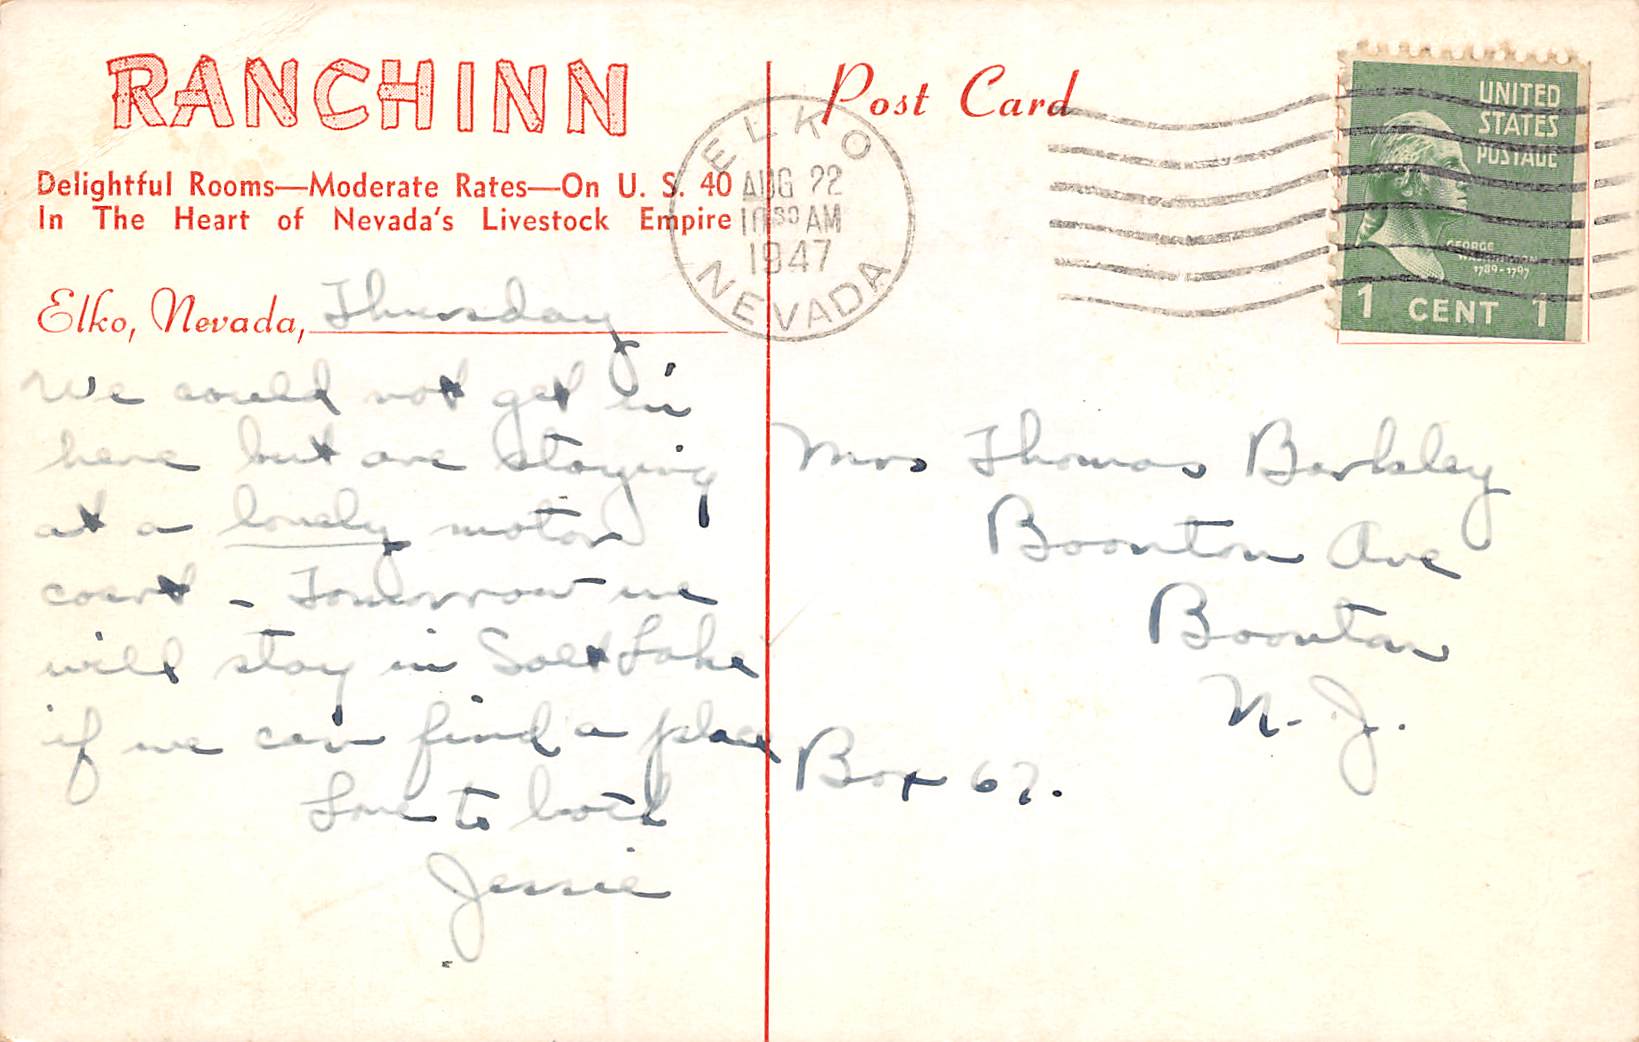 RANCHINN
Delightful Rooms—Moderate Rates—On U. S. 40
In The Heart of Nevada's Livestock Empire
Elko, Nevada, Thursday
We could not get in
here but are staying
at a lovely motor
court - Tomorrow we
will stay in Salt Lake
if we can find a place
Love to both
Jessie
Post Card
ELKO
AUG 22
10 30 AM
1947
NEVADA
UNITED
STATES
POSTAGE
GEORGE
WASHINGTON
1789-1797
1 CENT 1
Mrs Thomas Barkley
Boonton Ave
Boonton
N. J.
Box 67.